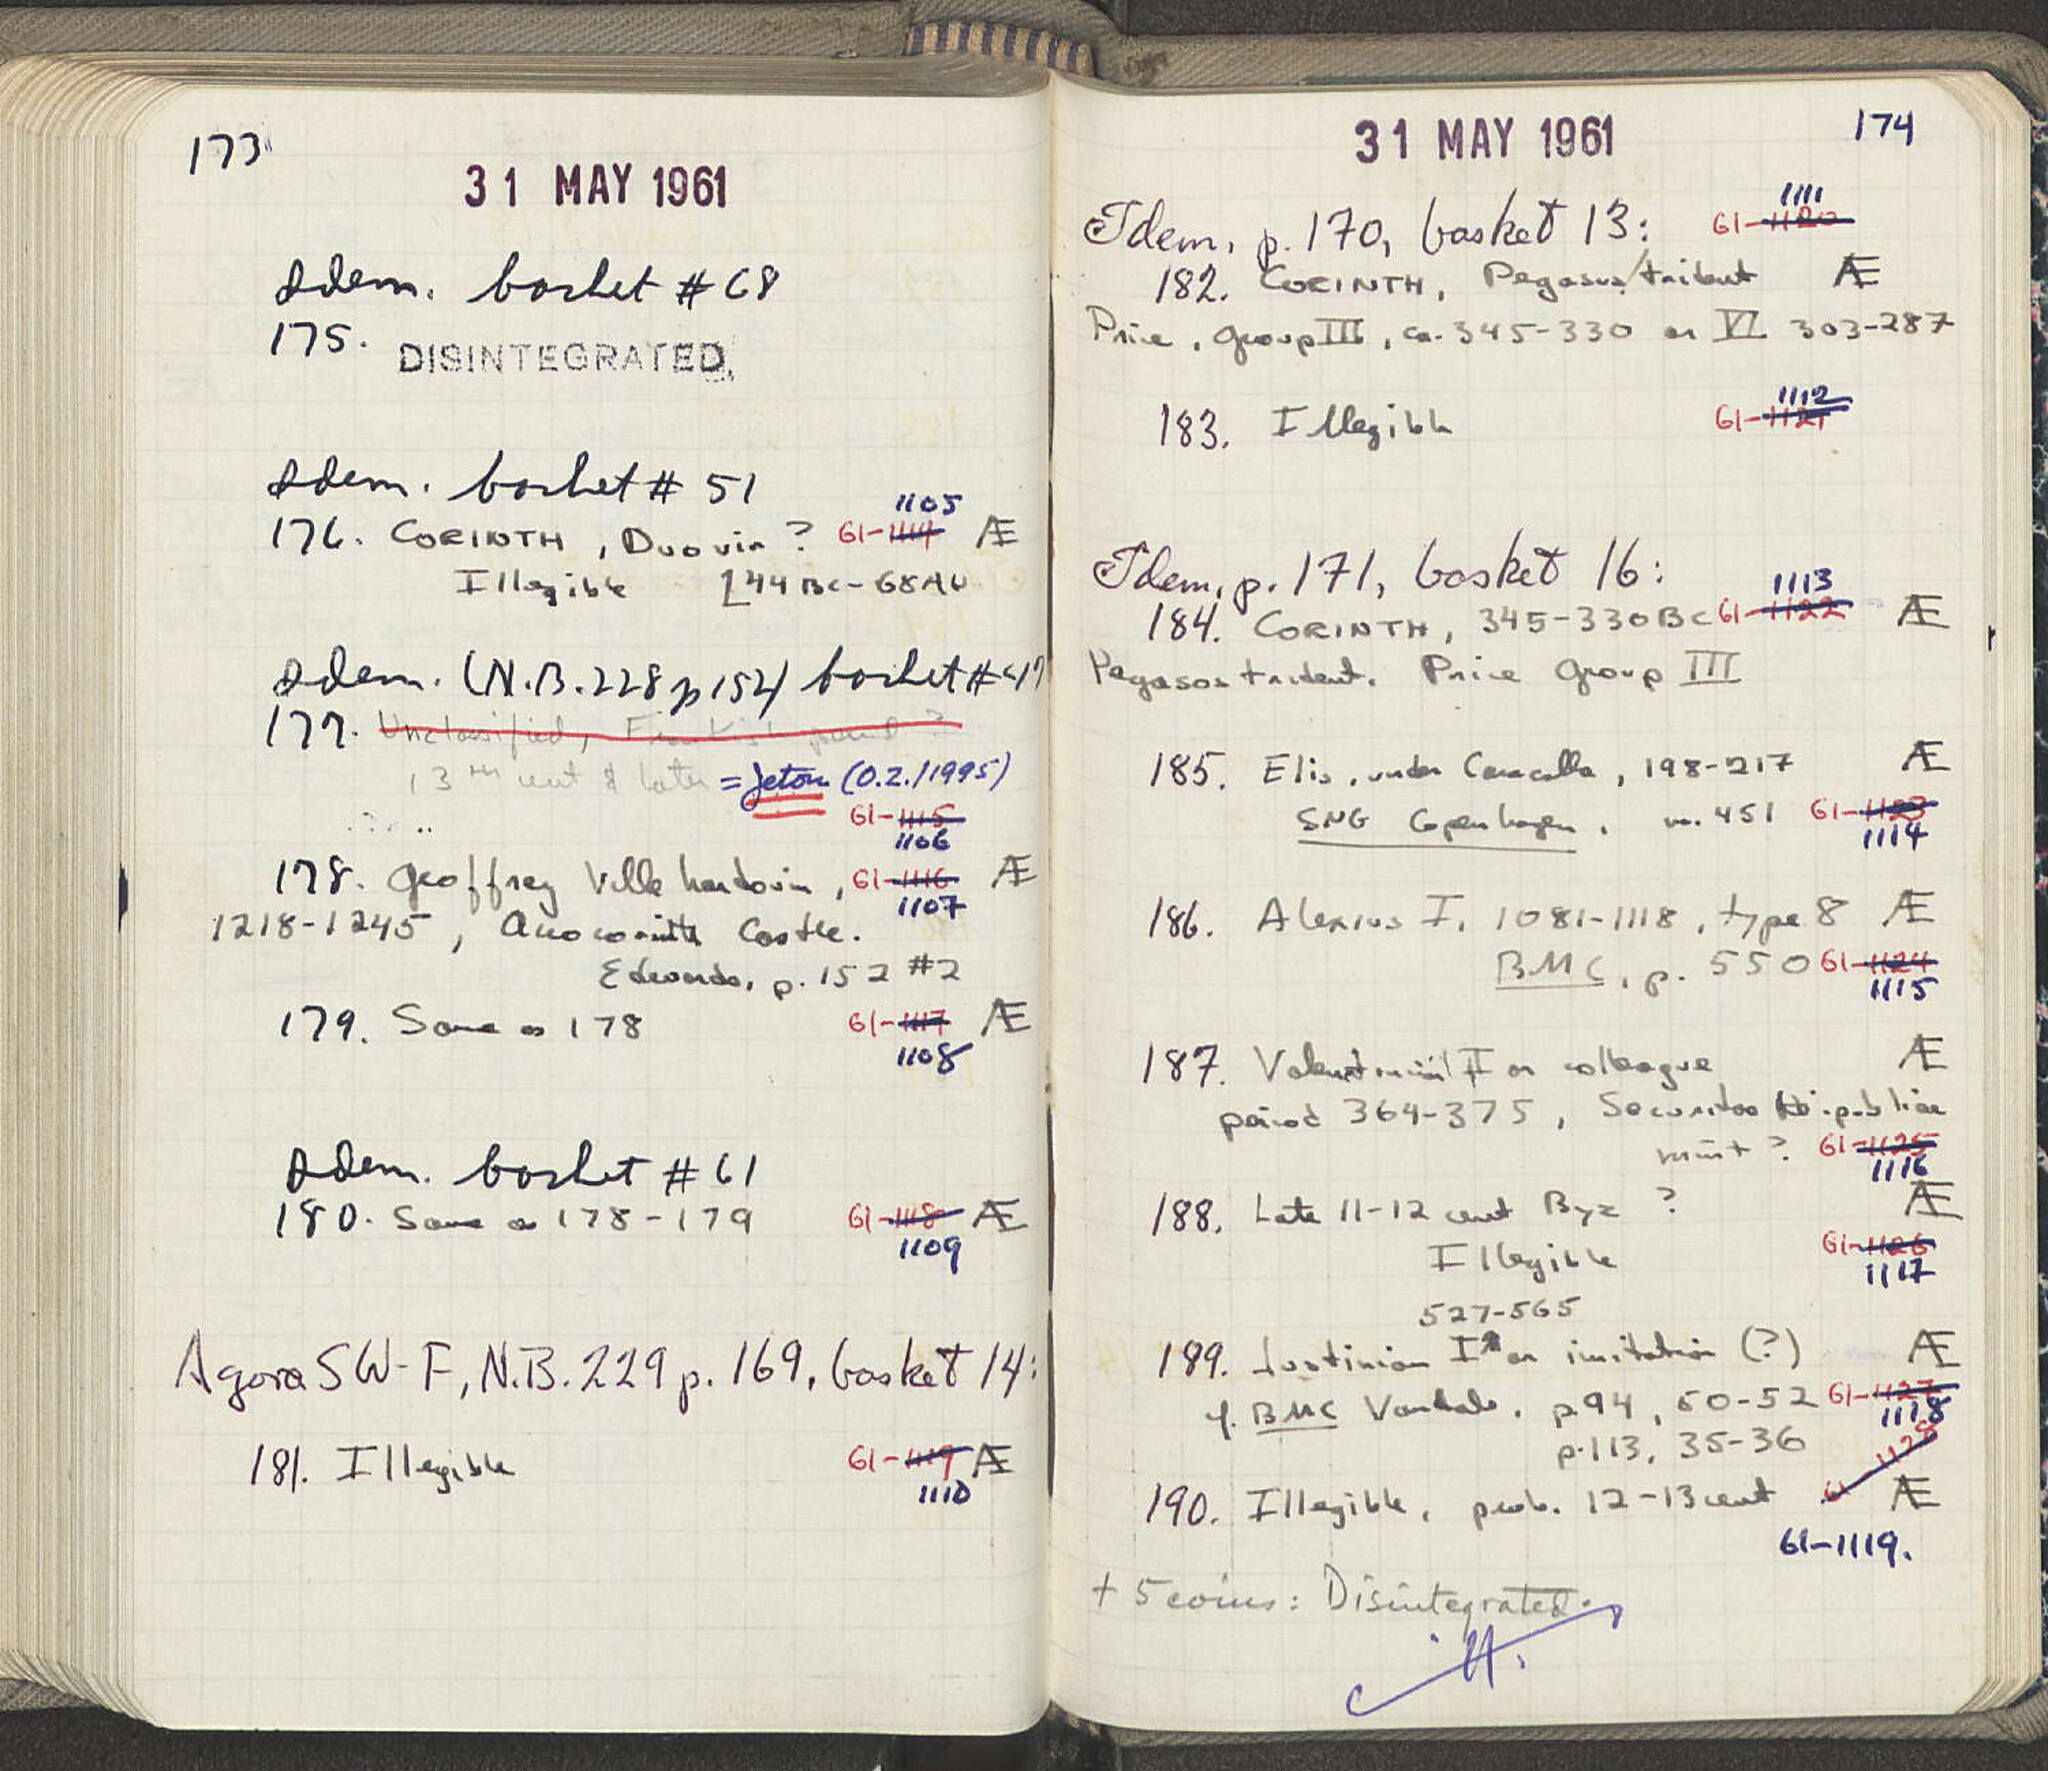 173
31 MAY 1961
Idem. basket # 68
175. DISINTEGRATED.
Idem. basket # 51
1105
176. CORINTH, Duovir? 61-1114 Æ
Illegible [44 BC-68 AD
Idem. (N.B. 228 p 152) basket #
177. Unclassified, Frankish period?
13th cent & later = Jeton (O.Z./1995)
61-1115
1106
178. Geoffrey Villehardouin, 61-1116 Æ
1107
1218-1245, Acrocorinth Castle.
Edwards, p. 152 #2
179. Same as 178 61-1117 Æ
1108
Idem. basket # 61
180. Same as 178-179 61-1118 Æ
1109
Agora SW-F, N.B. 229 p. 169, basket 14:
181. Illegible 61-1119 Æ
1110
31 MAY 1961
174
1111
Idem, p. 170, basket 13: 61-1120
182. CORINTH, Pegasus/trident Æ
Price, group III, ca. 345-330 or VI 303-287
1112
183. Illegible 61-1121
Idem, p. 171, basket 16:
1113
184. CORINTH, 345-330 BC 61-1122 Æ
Pegasos trident. Price Group III
185. Elis, under Caracalla, 198-217 Æ
SNG Copenhagen, no. 451 61-1123
1114
186. Alexius I, 1081-1118, type 8 Æ
BMC, p. 550 61-1124
1115
187. Valentinian I or colleague Æ
period 364-375, Securitas Reipublicae
mint? 61-1125
1116
188. Late 11-12 cent Byz ? Æ
Illegible 61-1126
1117
527-565
189. Justinian I or imitation (?) Æ
cf. BMC Vandals, p. 94, 50-52 61-1127
1118
p. 113, 35-36
61-1128
190. Illegible, prob. 12-13 cent Æ
61-1119.
+ 5 coins: Disintegrated.